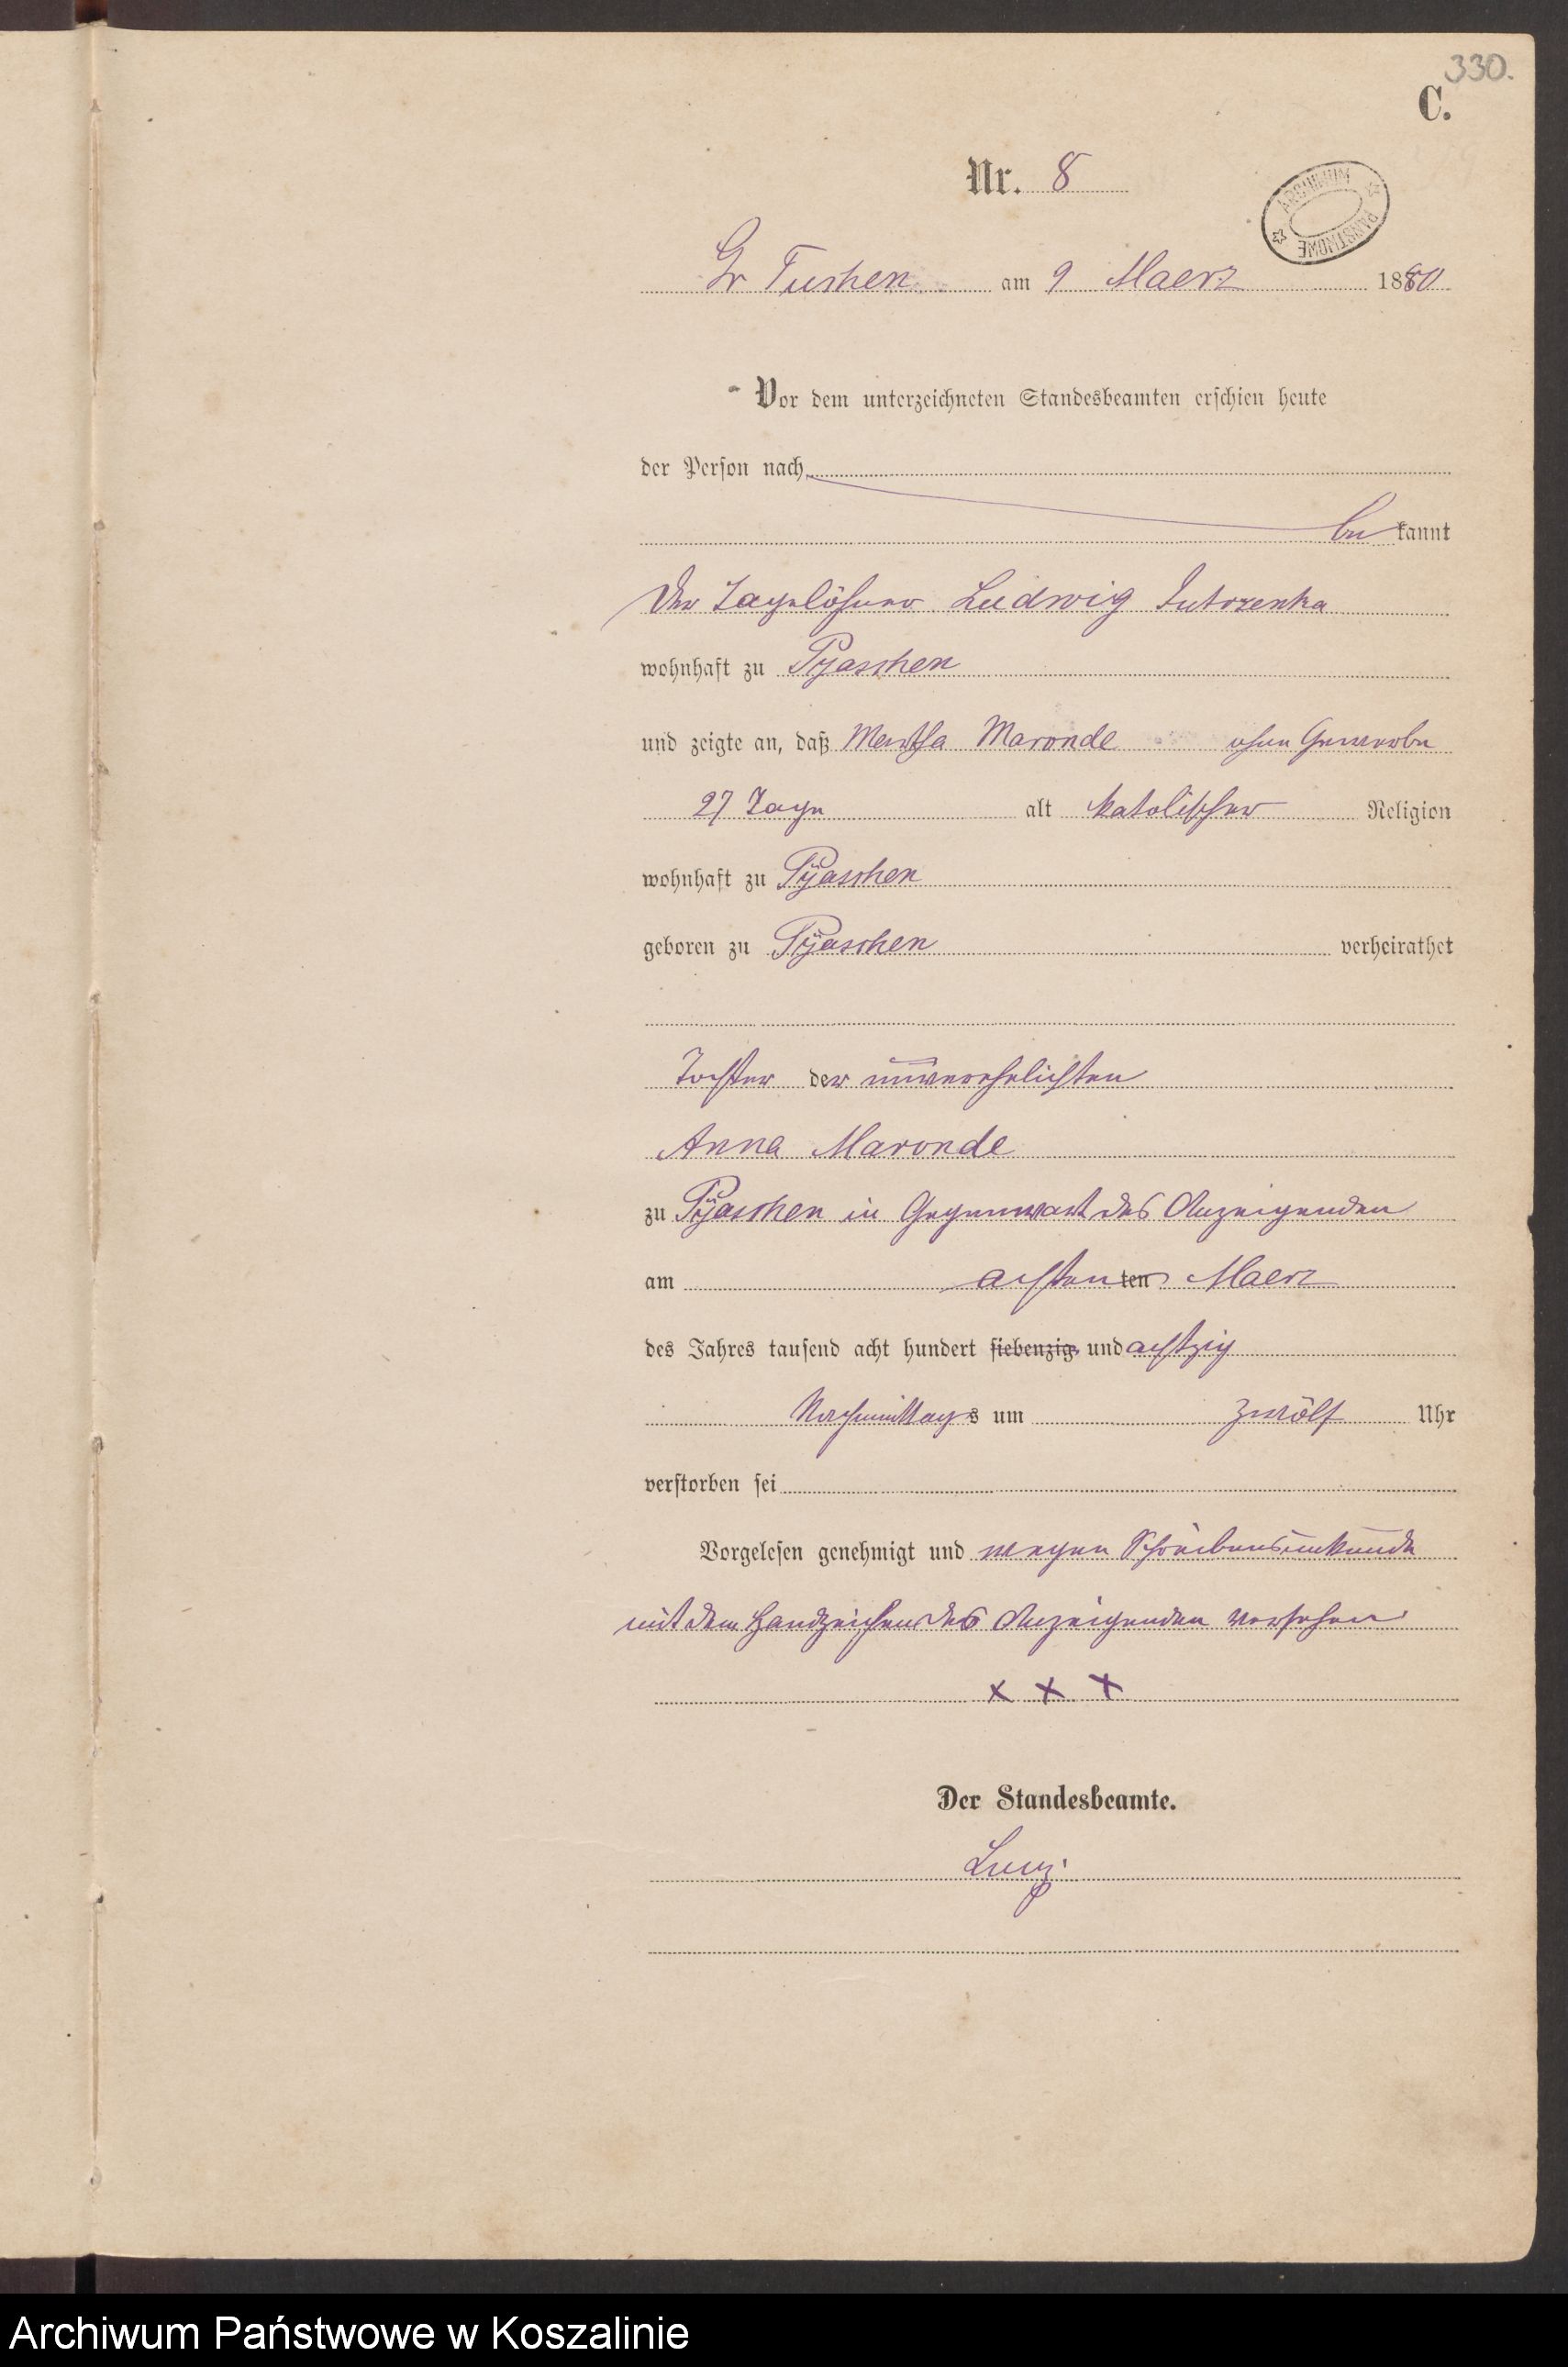 330.
C.
Nr. 8
ARCHIWUM PAŃSTWOWE
Gr Tuchen am 9 Maerz 1880
Vor dem unterzeichneten Standesbeamten erschien heute
der Person nach
be kannt
der Tagelöhner Ludwig Jutrzenka
wohnhaft zu Pyaschen
und zeigte an, daß Martha Maronde ohne Gewerbe
27 Tage alt katolischer Religion
wohnhaft zu Pÿaschen
geboren zu Pÿaschen verheirathet
Tochter der unverehelichten
Anna Maronde
zu Pÿaschen in Gegenwart des Anzeigenden
am achten ten Maerz
des Jahres tausend acht hundert siebenzig und achtzig
Nachmittags um zwölf Uhr
verstorben sei
Vorgelesen genehmigt und wegen Schreibensunkunde
mit dem Handzeichen des Anzeigenden versehen
x x x
Der Standesbeamte.
Archiwum Państwowe w Koszalinie